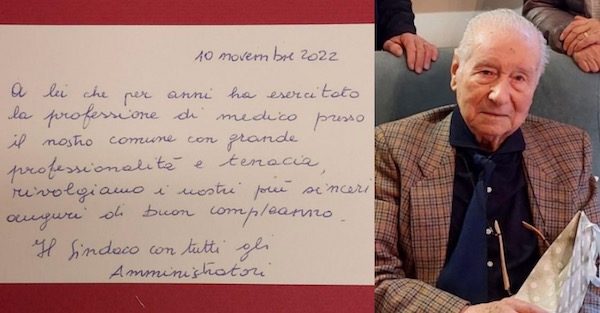 10 novembre 2022
A lei che per anni ha esercitato
la professione di medico presso
il nostro comune con grande
professionalità e tenacia,
rivolgiamo i nostri più sinceri
auguri di buon compleanno.
Il Sindaco con tutti gli
Amministratori